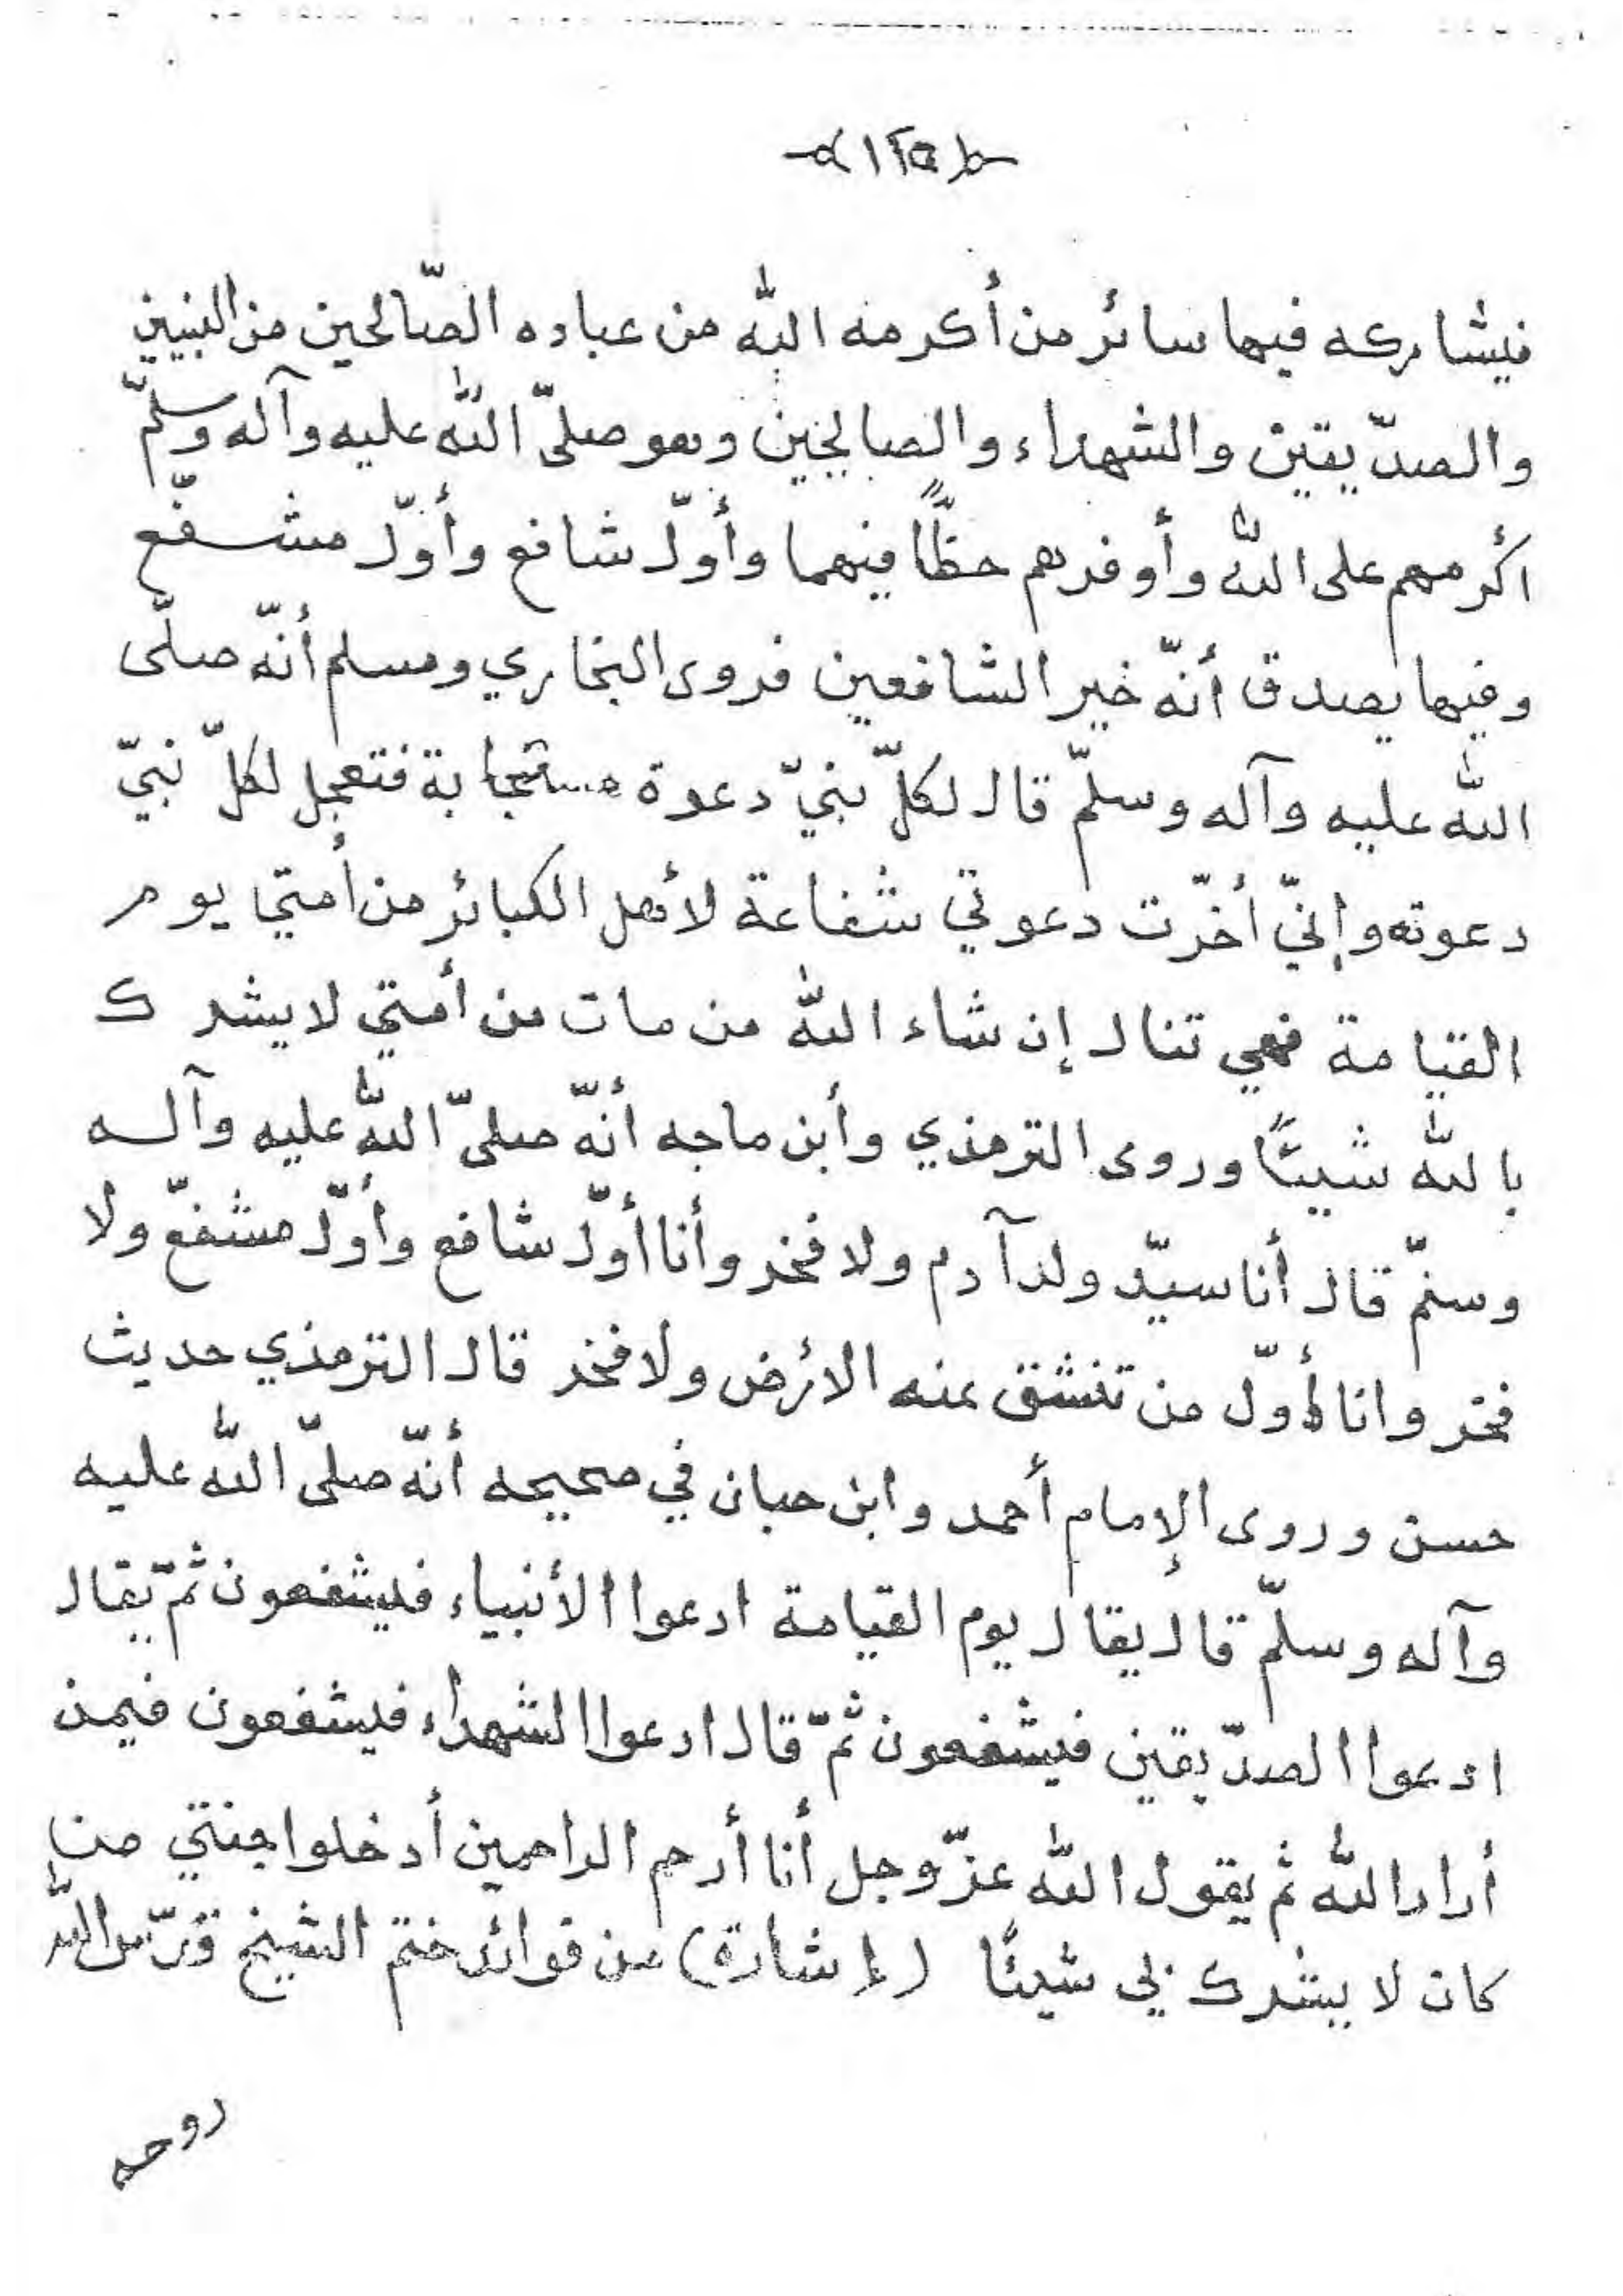 ١٢٥
فيشاركه فيها سائر من أكرمه الله من عباده الصّالحين من النبيين
والصدّيقين والشهداء والصالحين وهو صلّى الله عليه وآله وسلّم
أكرمهم على الله وأوفرهم حظًّا فيهما وأوّل شافع وأوّل مشفّع
وفيها يصدق أنّه خير الشافعين فروى البخاري ومسلم أنّه صلّى
الله عليه وآله وسلّم قال لكلّ نبيّ دعوة مستجابة فتعجل لكلّ نبيّ
دعوته وإنيّ أخّرت دعوتي شفاعة لأهل الكبائر من أمتي يوم
القيامة فهي تنال إن شاء الله من مات من أمتي لا يشرك
بالله شيئًا وروى الترمذي وأبن ماجه أنّه صلّى الله عليه وآله
وسلّم قال أنا سيّد ولد آدم ولا فخر وأنا أوّل شافع وأوّل مشفّع ولا
فخر وانا أوّل من تنشق عنه الأرض ولا فخر قال الترمذي حديث
حسن وروى الإمام أحمد وابن حبان في صحيحه أنّه صلّى الله عليه
وآله وسلّم قال يقال يوم القيامة ادعوا الأنبياء فليشفعون ثمّ يقال
ادعوا الصدّيقين فيشفعون ثمّ قال ادعوا الشهداء فيشفعون فيمن
أراد الله ثم يقول الله عزّ وجل أنا أرحم الراحمين أدخلوا جنتي من
كان لا يشرك بي شيئًا (إشارة) من فوائد ختم الشيخ قدّس الله
روحه